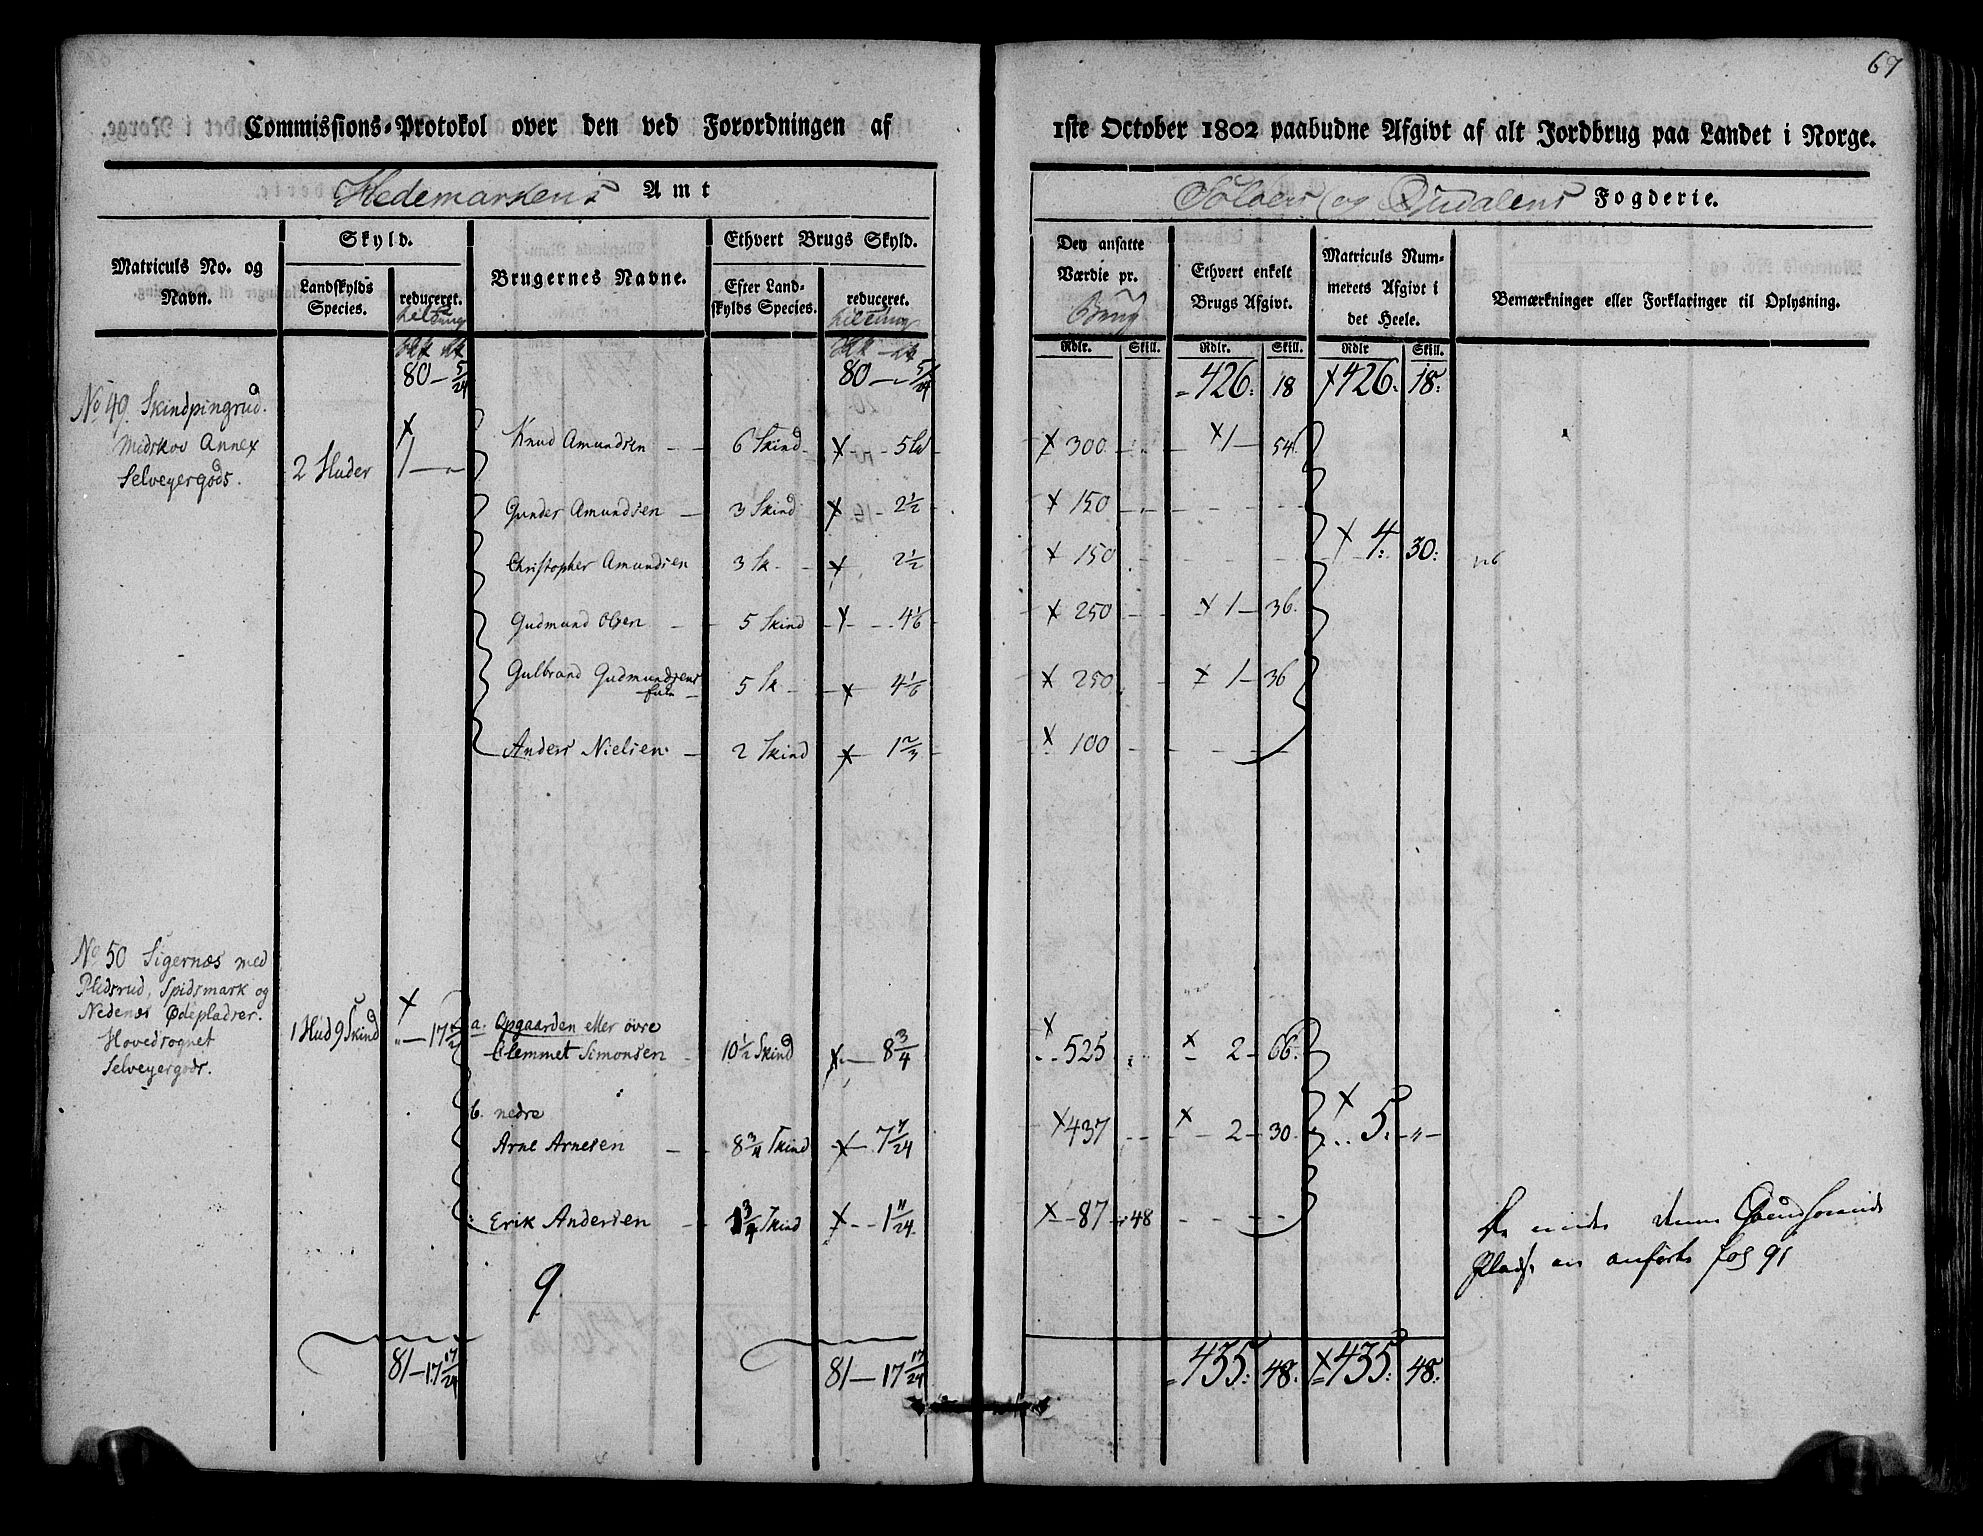 67
Commissions-Protokol over den ved Forordningen af 1ste October 1802 paabudne Afgivt af alt Jordbrug paa Landet i Norge.
Hedemarkens Amt
Soloers og Oudalens Fogderie.
Matriculs No. og Navn.
Skyld.
Landskylds Species.
reduceret.
Brugernes Navne.
Ethvert Brugs Skyld.
Efter Landskylds Species.
reduceret.
Den ansatte Værdie pr. Brug
Ethvert enkelt Brugs Afgivt.
Matriculs Nummerets Afgivt i det Heele.
Bemærkninger eller Forklaringer til Oplysning.
Rdlr. Skill. Rdlr. Skill. Rdlr Skill.
80 — 5/24 80 — 5/24 426: 18 X 426: 18:
No 49. Skindpingrud.
Midskov Annex
Selveyergods.
2 Huder X 1 — „
Knud Amundsen — 6 Skind X — 5 X 300 X 1 — 54
Gunder Amundsen — 3 Skind X — 2½ X 150
X 4: 30:
Christopher Amundsen 3 Sk. X 2½ X 150
Gudmund Olsen — 5 Skind X 4 1/6 X 250 X 1 — 36.
Gulbrand Gudmundsens
5 Sk X 4 1/6 X 250 X 1 — 36
Anders Nielsen — 2 Skind X 1 2/3 X 100
No 50 Sigernæs med
Pledsrud, Spidsmark og
Nedenæs Ødepladser.
Hovedsognet
Selveyergods.
1 Hud 9 Skind X „ — 17
a. Opgaarden eller övre
Clemmet Simonsen 10½ Skind X — 8 3/4 X 525 X 2 — 66.
b. nedre
Arne Arnesen — 8 3/4 Skind X — 7 7/24 X 437 X 2 — 30. X 5. „
Erik Andersen 1 3/4 Skind X — 1 11/24 X 87 48
9.
Plads er anförte fol 91
81 — 17 17/24 81 — 17 17/24 435: 48. X 435: 48: